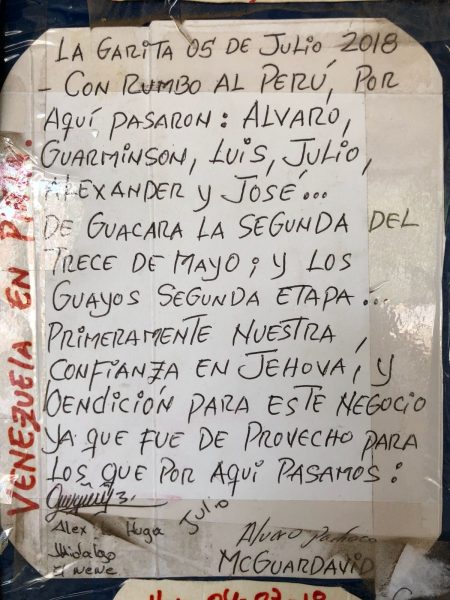 LA GARITA 05 DE JULIO 2018
- CON RUMBO AL PERÚ, POR
AQUÍ PASARON: ALVARO,
GUARMINSON, LUIS, JULIO,
ALEXANDER Y JOSÉ...
DE GUACARA LA SEGUNDA DEL
TRECE DE MAYO; Y LOS
GUAYOS SEGUNDA ETAPA...
PRIMERAMENTE NUESTRA
CONFIANZA EN JEHOVÁ, Y
BENDICIÓN PARA ESTE NEGOCIO
YA QUE FUE DE PROVECHO PARA
LOS QUE POR AQUÍ PASAMOS:
Julio
Alex Huga
Alvaro Pacheco
Hidalgo
El nene
McGUARDAVID
VENEZUELA EN